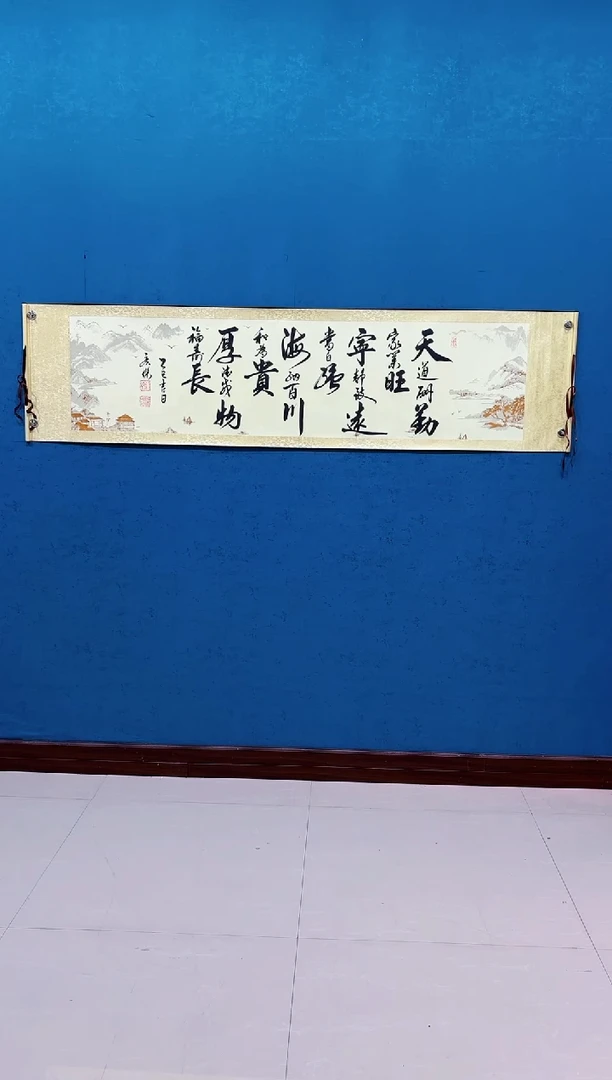 天道酬勤
家業旺
寧静致遠
當自强
海納百川
和為貴
厚德載物
福壽長
乙巳吉日